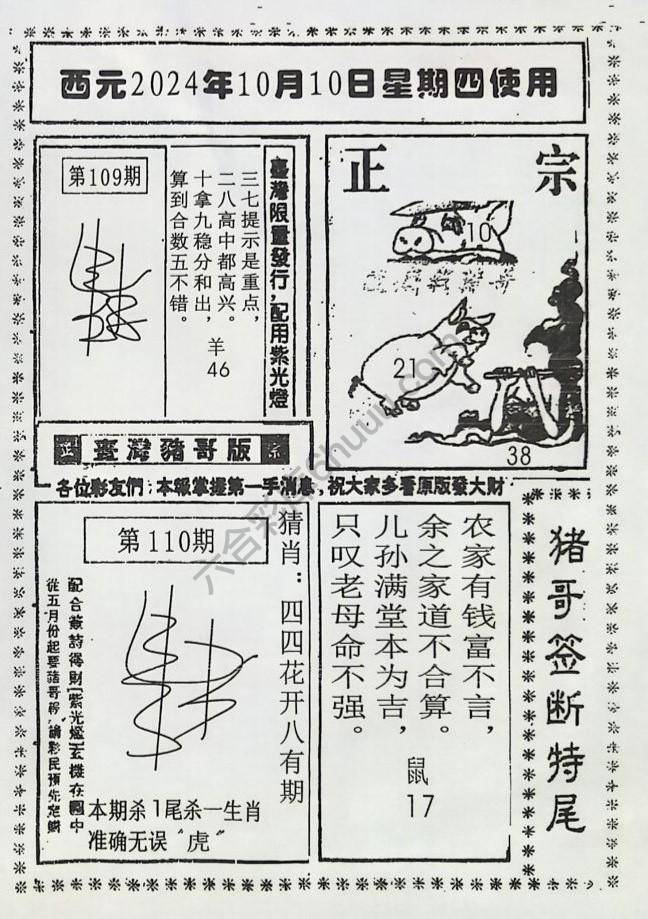 西元2024年10月10日星期四使用
第109期
臺灣限量發行,配用紫光燈
三七提示是重点,
二八高中都高兴。
十拿九稳分和出,
算到合数五不错。
羊
46
正宗
10
21
38
正 臺灣豬哥版 宗
各位彩友們:本報掌握第一手消息,祝大家多看原版發大財
第110期
猜肖:四四花开八有期
配合簽詩得財
紫光燈玄機在圖中
從五月份起要豬哥得
請彩民預先定購
本期杀1尾杀一生肖
准确无误“虎”
农家有钱富不言,
余之家道不合算。
儿孙满堂本为吉,
只叹老母命不强。
鼠
17
猪哥签断特尾